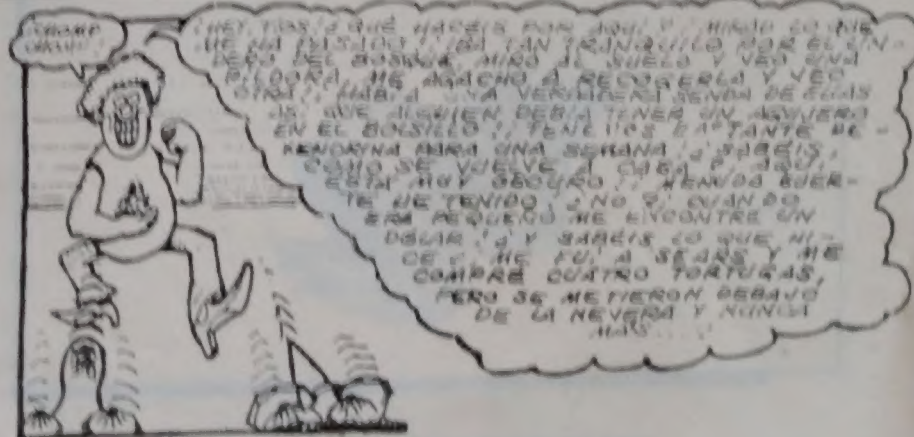 ¡CHOMP
¡HEY, TIOS! ¿QUÉ HACÉIS POR AQUÍ? ¡MIRAD LO QUE
ME HA PASADO!! IBA TAN TRANQUILO POR EL SEN-
DERO DEL BOSQUE, MIRO AL SUELO Y VEO UNA
PÍLDORA, ME AGACHO A RECOGERLA Y VEO
OTRA!! HABÍA UNA VERDADERA SENDA DE ELLAS
QUE ALGUIEN DEBÍA TENER UN AGUJERO
EN EL BOLSILLO!! TENEMOS BASTANTE BE-
PARA UNA SEMANA! ¿SABÉIS
COMO SE VUELVE A CASA? AQUÍ
ESTÁ MUY OSCURO!! MENUDA SUER-
TE HE TENIDO! ¿NO? CUANDO
ERA PEQUEÑO ME ENCONTRÉ UN
DÓLAR! ¿Y SABÉIS LO QUE HI-
CE? ME FUI A SEARS Y ME
COMPRÉ CUATRO TORTUGAS,
PERO SE METIERON DEBAJO
DE LA NEVERA Y NUNCA
MÁS...